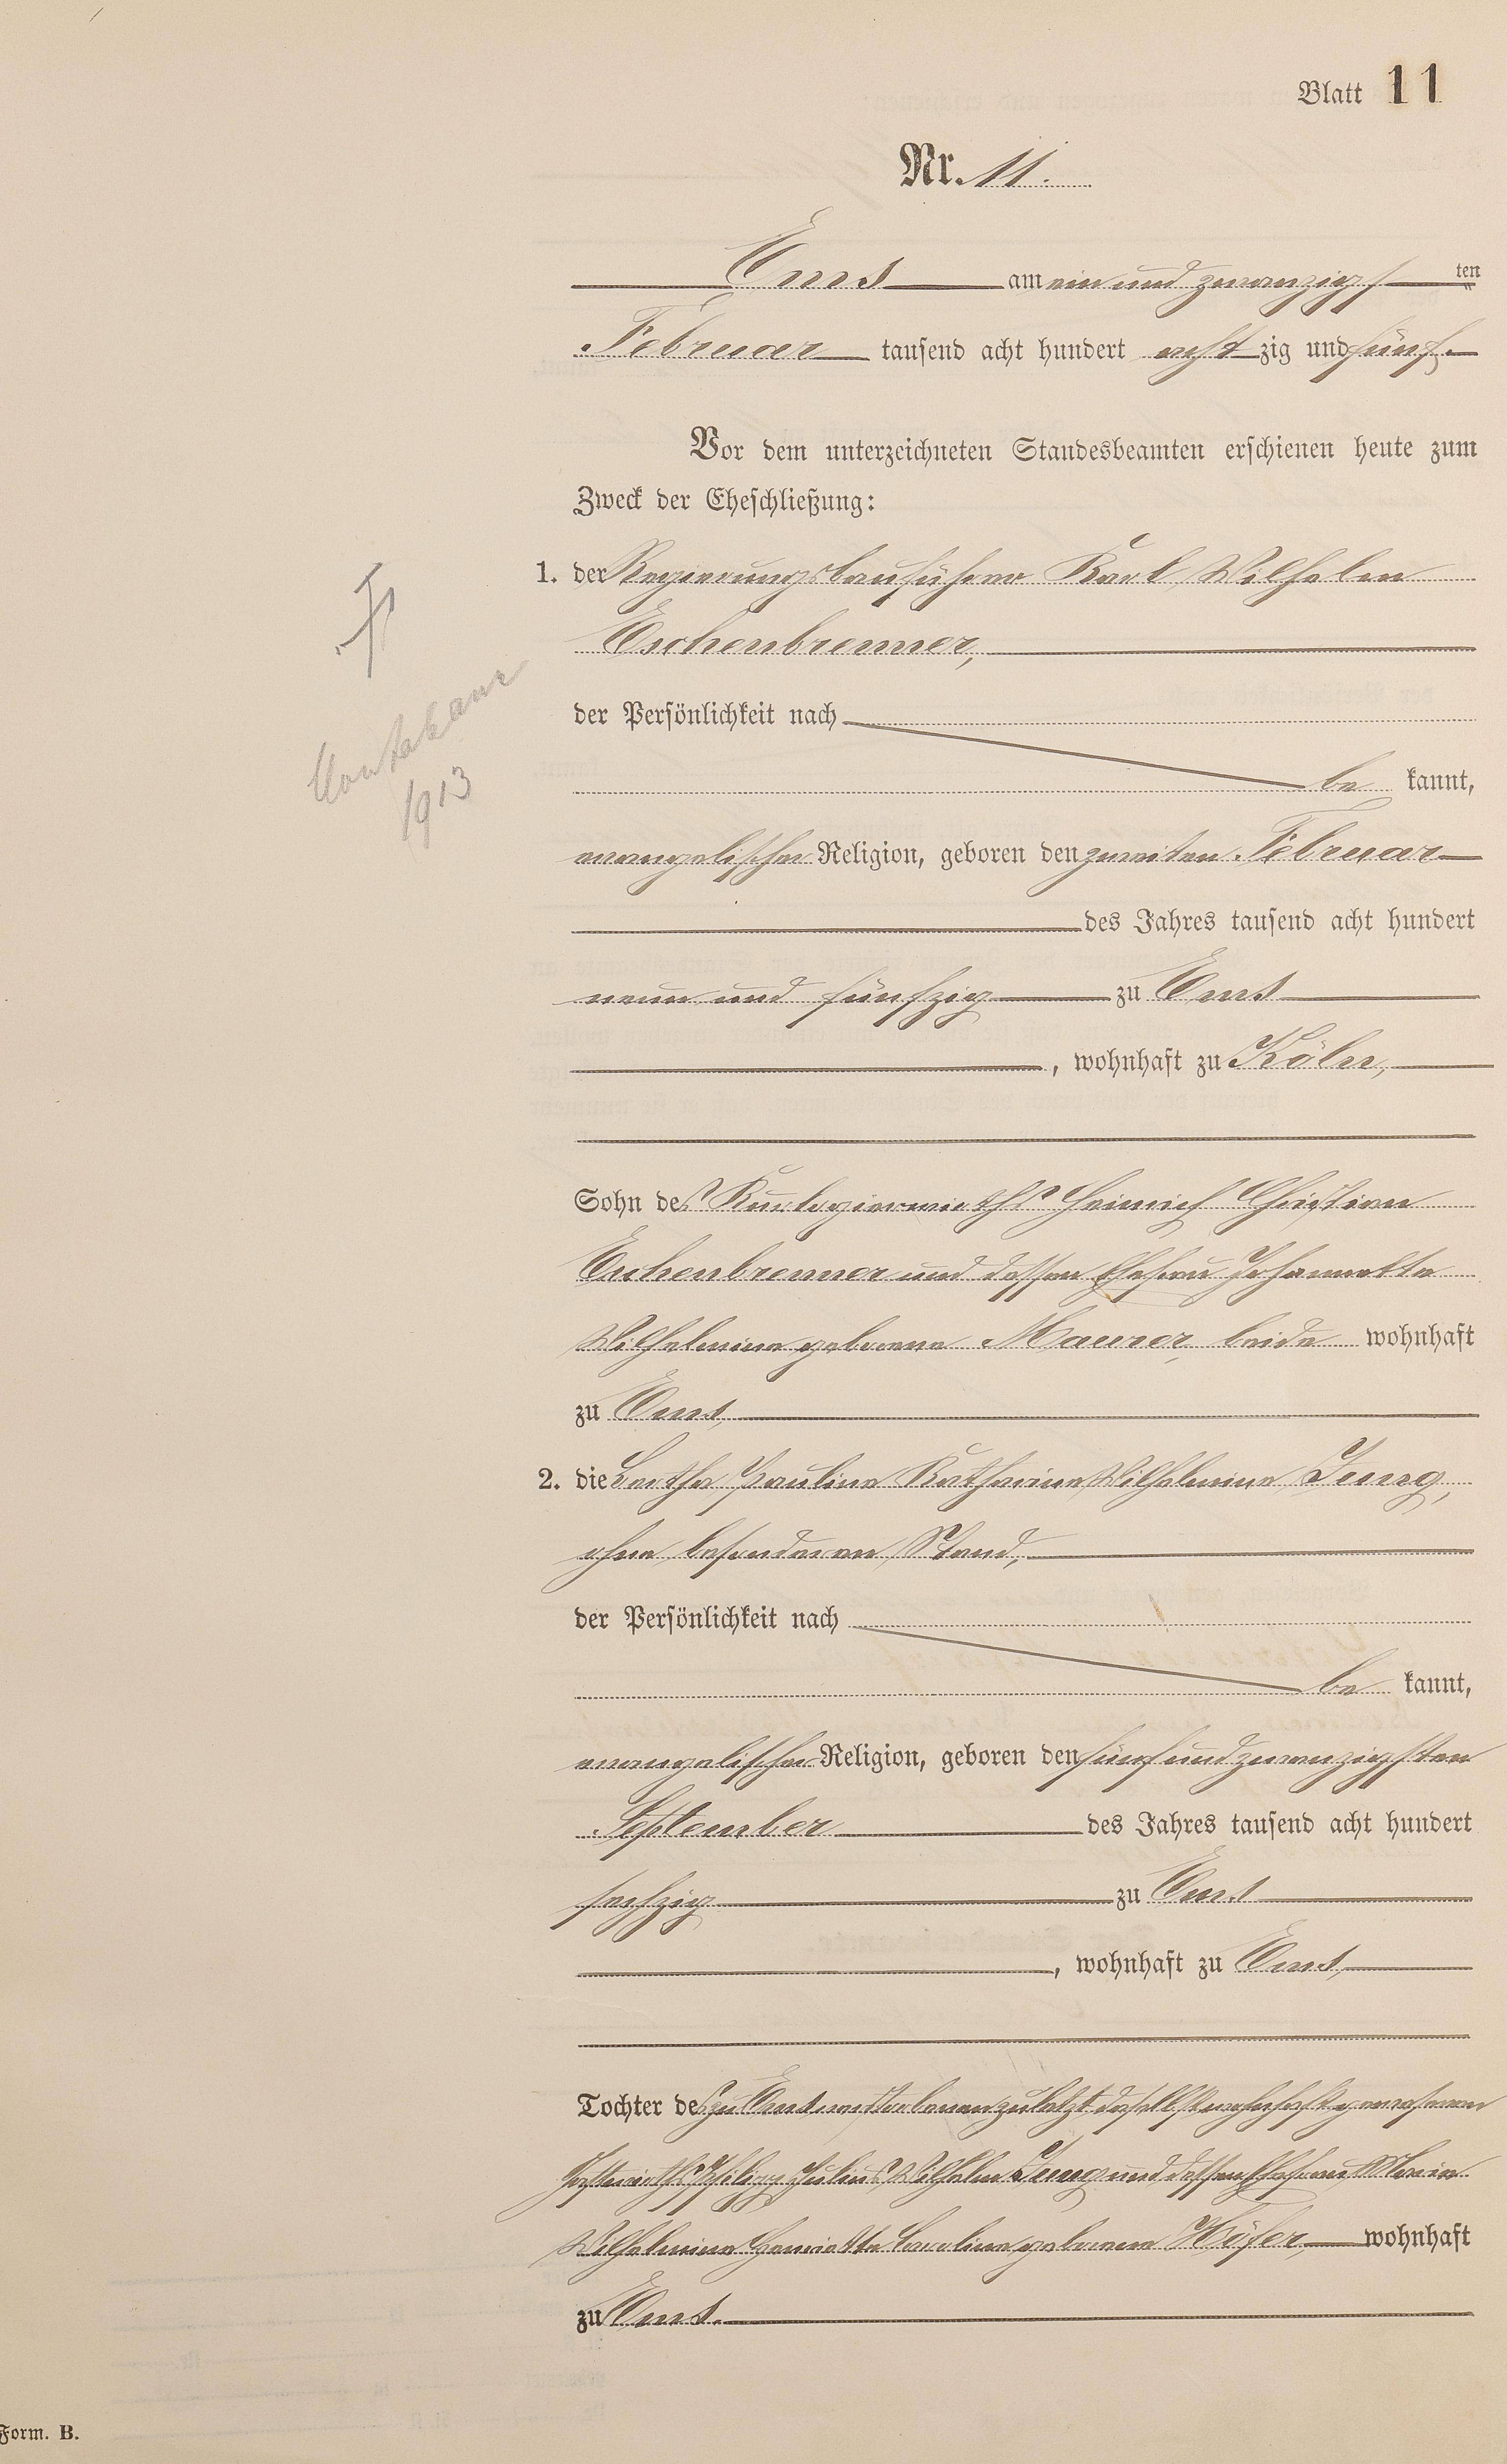 Blatt 11
Nr. 11.
Ems am ein und zwanzigsten
Februar tausend acht hundert achtzig und fünf.
Vor dem unterzeichneten Standesbeamten erschienen heute zum
Zweck der Eheschließung:
1. der Regierungsbauführer Karl Wilhelm
Eschenbrenner,
der Persönlichkeit nach
1913
be kannt,
evangelischer Religion, geboren den zweiten Februar
des Jahres tausend acht hundert
neun und fünfzig zu Ems
, wohnhaft zu Köln,
Sohn des Kurlogierwirths Heinrich Christian
Eschenbrenner und dessen Ehefrau Johannette
Wilhelmine geborene Maurer, beide wohnhaft
zu Ems,
2. die Bertha Pauline Katharine Wilhelmine Jung,
ohne besonderen Stand,
der Persönlichkeit nach
be kannt,
evangelischer Religion, geboren den fünf und zwanzigsten
September des Jahres tausend acht hundert
sechzig zu Ems
, wohnhaft zu Ems,
Tochter des zu Ems verstorbenen zuletzt daselbst wohnhaft gewesenen
Gastwirths Philipp Julius Wilhelm Jung und dessen Ehefrau Marie
Wilhelmine Henriette Caroline geborene Höfer, wohnhaft
zu Ems.
Form. B.